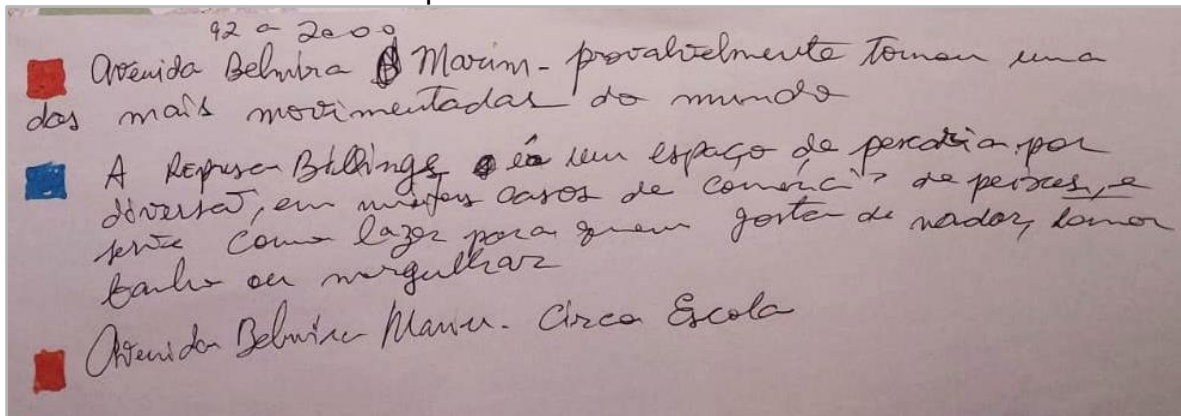 92 a 2000
Avenida Belmira Marim - provalvelmente tornou uma
das mais movimentadas do mundo
A Represa Billings é um espaço de pescaria por
diversão, em muitos casos de comércio de peixes, e
serve como lazer para quem gosta de nadar, tomar
banho ou mergulhar
Avenida Belmira Marin - Circo Escola